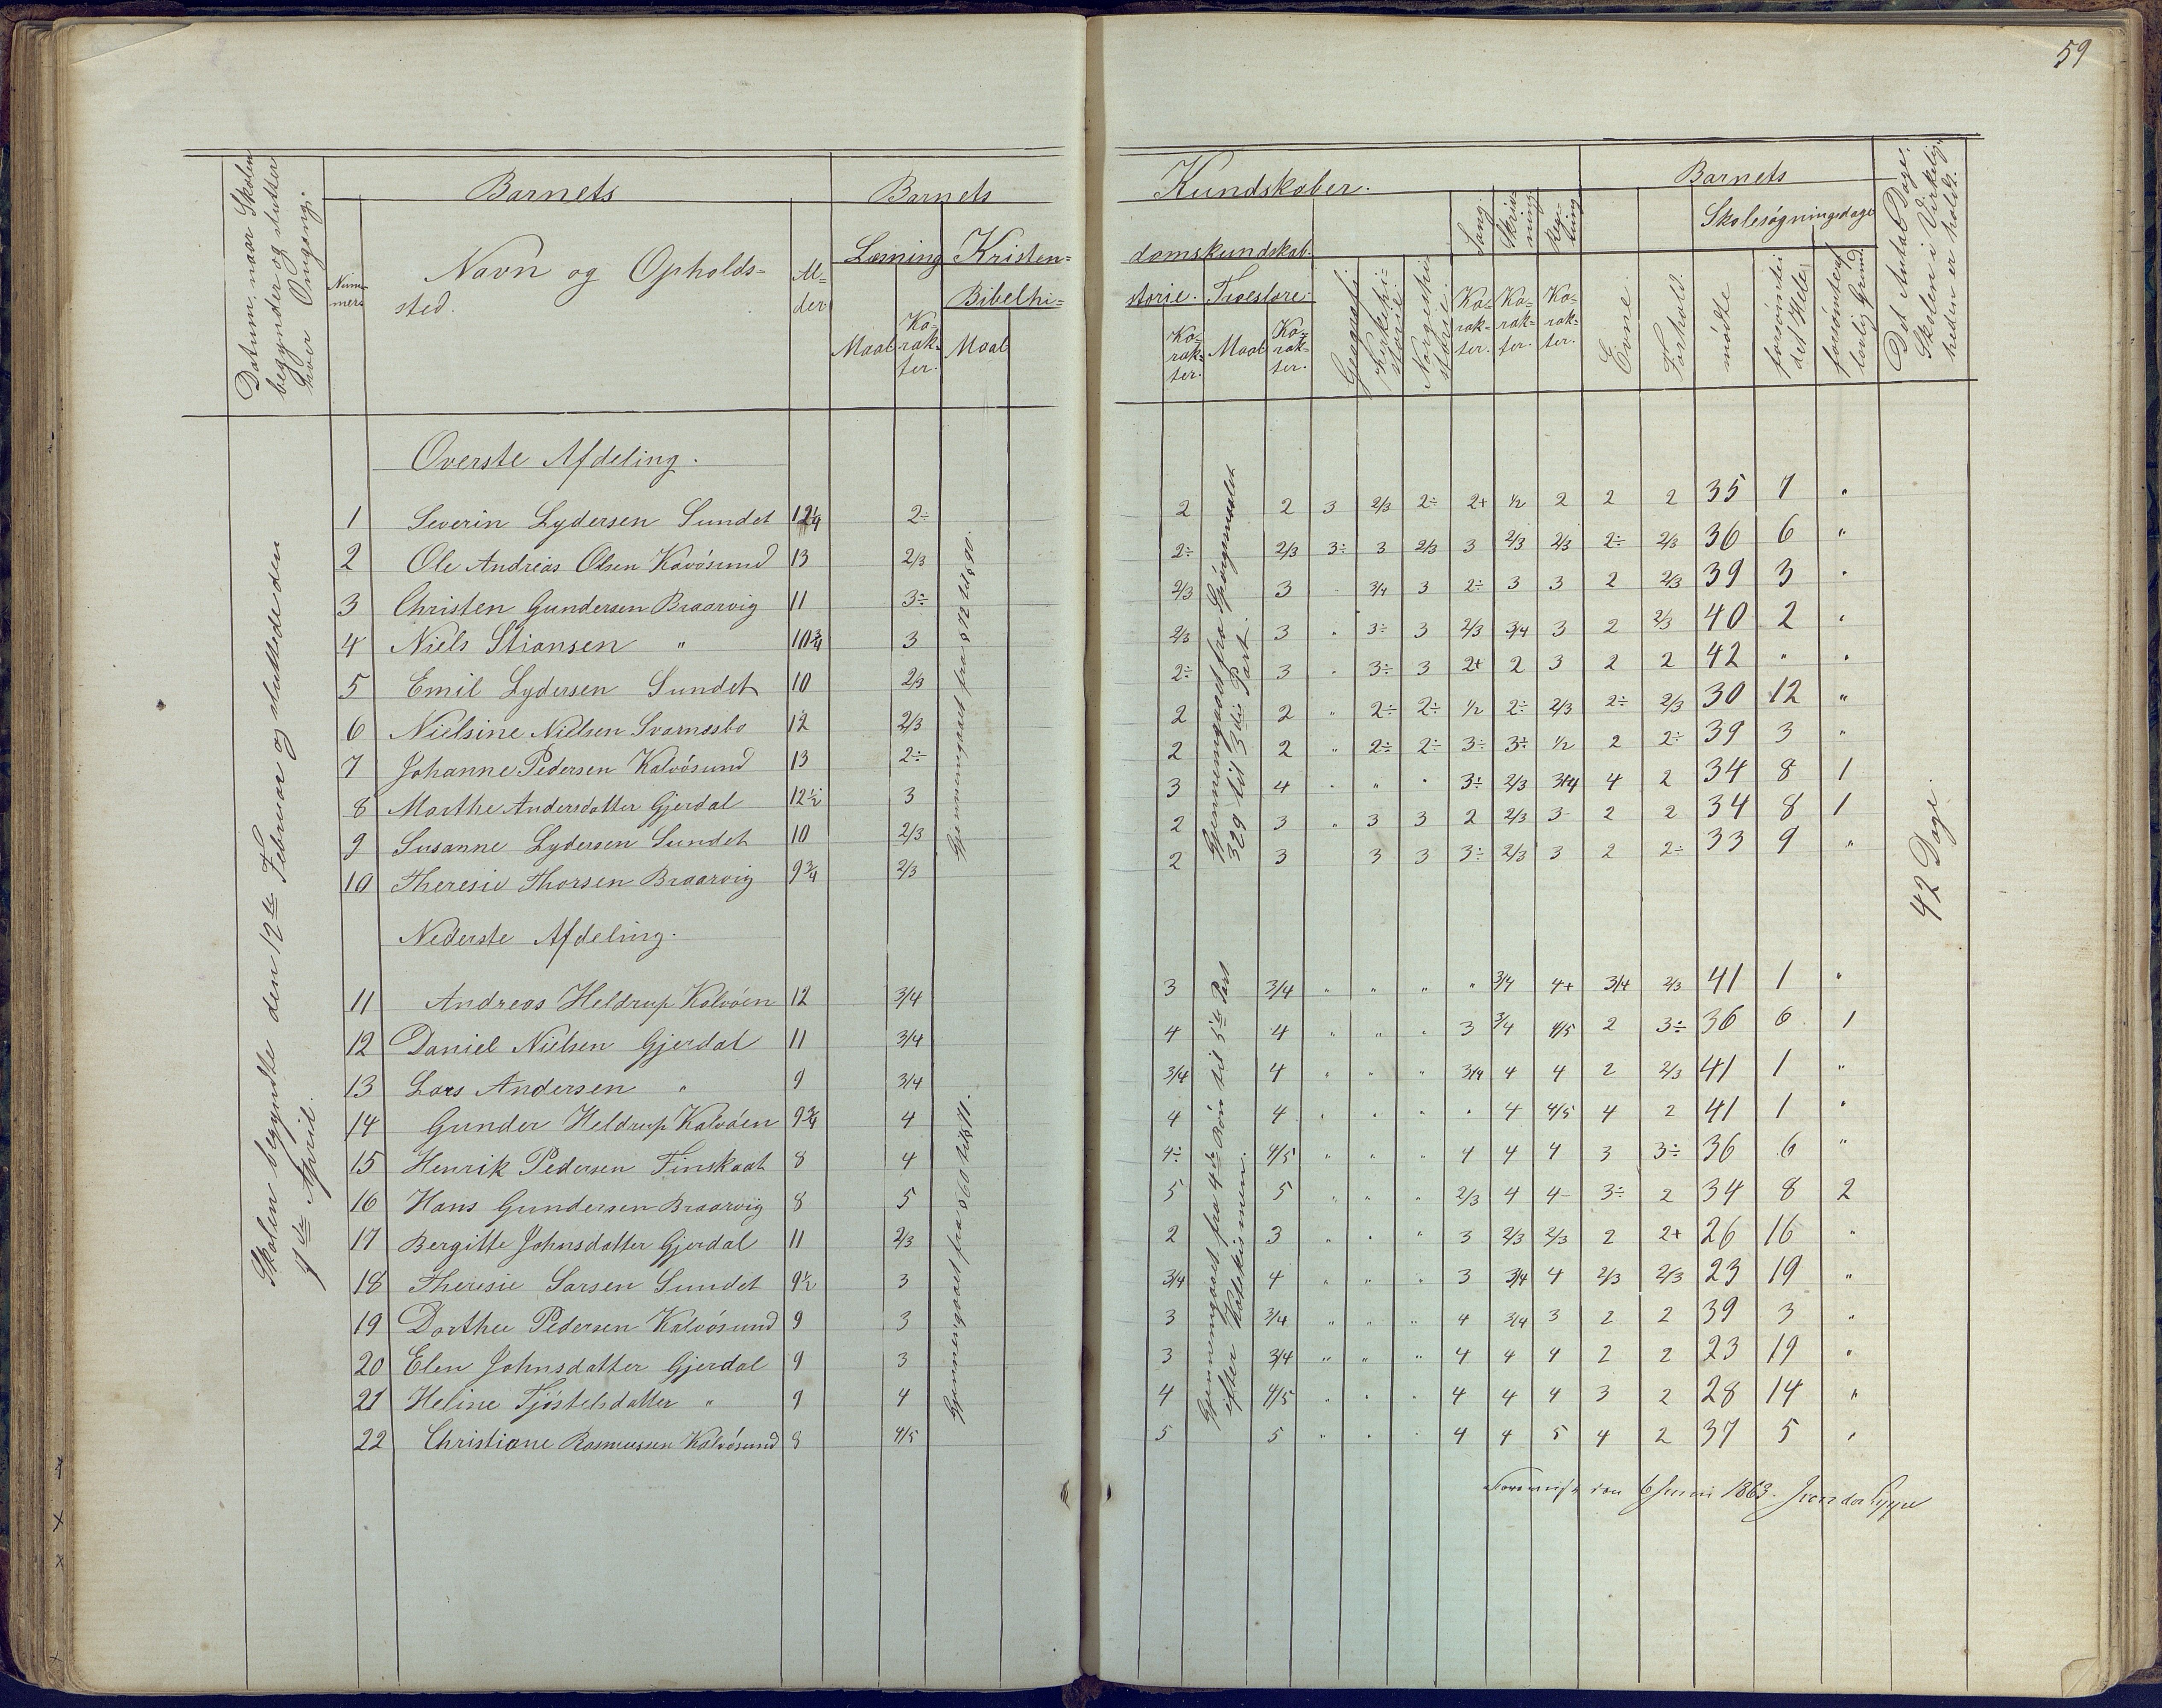 59
Datum, naar Skolen
begynder og slutter
hver Omgang.
Num-
mer
Barnets
Navn og Opholds-
sted.
Al-
der
Barnets
Læsning
Kristen-
Bibelhi-
Maal
Ka-
rak-
ter.
Maal
Kundskaber.
domskundskab.
storie. Troeslære.
Ka-
rak-
ter.
Maal
Ka-
rak-
ter.
Geografi
Kirkehi-
storie.
Norgeshi-
storie.
Sang.
Skriv-
ning.
Reg-
ning
Ka-
rak-
ter.
Ka-
rak-
ter.
Ka-
rak-
ter.
Barnets
Evne.
Forhold.
Skolesøgningsdage
mødte
forsømte i
det Hele
forsømte af
lovlig Grund.
Det Antal Dage,
Skolen i Virkelig-
heden er holdt.
Skolen begyndte den 12te Februar og sluttede den
9de April.
Øverste Afdeling.
1 Severin Lydersen Sundet 12¼ 2÷ 2 2 3 2/3 2÷ 2+ ½ 2 2 2 35 7 "
2 Ole Andreas Olsen Kavøsund 13 2/3 2÷ 2/3 3÷ 3 2/3 3 2/3 2/3 2÷ 2/3 36 6 "
3 Christen Gundersen Braarvig 11 3÷ 2/3 3 " 3/4 3 2÷ 3 3 2 2/3 39 3 "
4 Niels Stiansen " 10¾ 3 2/3 3 " 3÷ 3 2/3 3/4 3 2 2/3 40 2 "
5 Emil Lydersen Sundet 10 2/3 2÷ 3 " 3÷ 3 2+ 2 3 2 2 42 " "
6 Nielsine Nielsen Svarnæsbo 12 2/3 2 2 " 2÷ 2÷ ½ 2÷ 2/3 2÷ 2/3 30 12 "
7 Johanne Pedersen Kalvøsund 13 2÷ 2 2 " 2÷ 2÷ 3÷ 3÷ ½ 2 2÷ 39 3 "
8 Marthe Andersdatter Gjerdal 12½ 3 3 4 " " " 3÷ 2/3 3/4 4 2 34 8 1
9 Susanne Lydersen Sundet 10 2/3 2 3 " 3 3 2 2/3 3- 2 2 34 8 1
10 Theresie Thorsen Braarvig 9¾ 2/3 2 3 3 3 3÷ 2/3 3 2 2÷ 33 9 "
Gjennemgaaet fra § 72 til § 90.
Gjennemgaaet fra Spørgsmaalet
329 til 3die Part.
42 Dage.
Nederste Afdeling.
11 Andreas Heldrup Kalvøen 12 3/4 3 3/4 " " " " 3/4 4+ 3/4 2/3 41 1 "
12 Daniel Nielsen Gjerdal 11 3/4 4 4 " " " 3 3/4 4/5 2 3÷ 36 6 1
13 Lars Andersen " 9 3/4 3/4 4 " " " 3/4 4 4 2 2/3 41 1 "
14 Gunder Heldrup Kalvøen 9¾ 4 4 4 " " " " 4 4/5 4 2 41 1 "
15 Henrik Pedersen Finskaat 8 4 4÷ 4/5 " " " 4 4 4 3 3÷ 36 6 "
16 Hans Gundersen Braarvig 8 5 5 5 " " " 2/3 4 4- 3÷ 2 34 8 2
17 Bergitte Johnsdatter Gjerdal 11 2/3 2 3 " " " 3 2/3 2/3 2 2+ 26 16 "
18 Theresie Larsen Sundet 9½ 3 3/4 4 " " " 3 3/4 4 2/3 2/3 23 19 "
19 Dorthee Pedersen Kalvøsund 9 3 3 3/4 " " " 4 3/4 3 2 2 39 3 "
20 Elen Johnsdatter Gjerdal 9 3 3 3/4 " " " 4 4 4 2 2 23 19 "
21 Heline Tjøstelsdatter " 9 4 4 4/5 " " " 4 4 4 3 2 28 14 "
22 Christiane Rasmussen Kalvøsund 8 4/5 5 5 " " " 4 4 5 4 2 37 5 "
Gjennemgaaet fra § 60 til § 71.
Gjennemgaaet fra 4de Bøn til 5te Part
efter Katekismen.
den 6 Juni 1863.